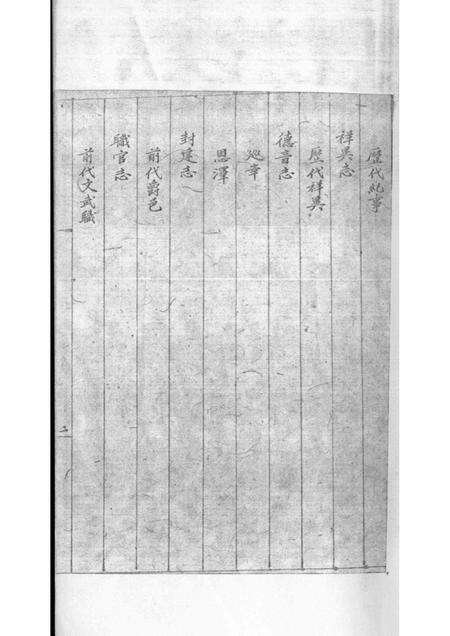 歷代紀事
祥異志
歷代祥異
德音志
巡幸
恩澤
封建志
前代爵邑
職官志
前代文武職
二